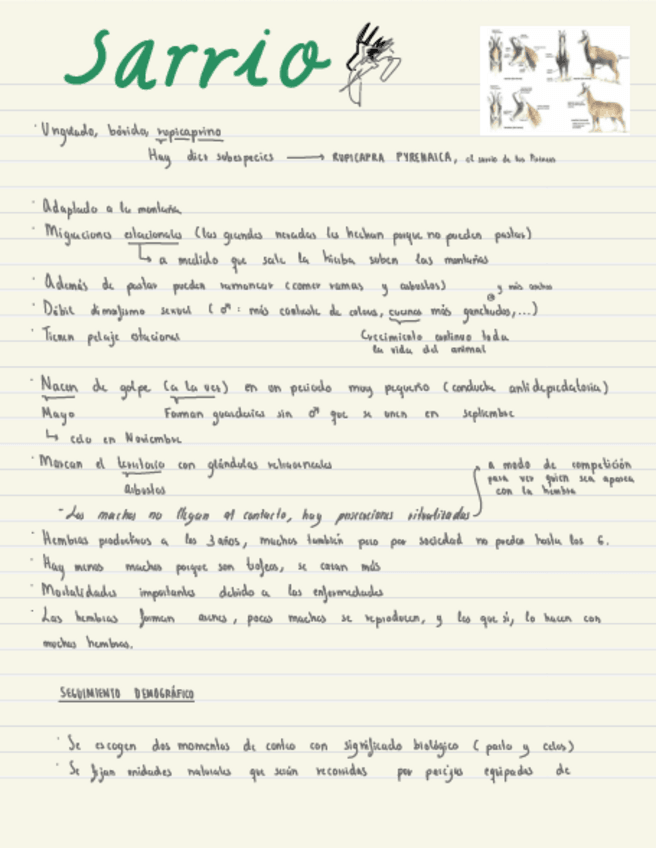 Sarrio
· Ungulado, bóvido, rupicaprino
Hay diez subespecies → RUPICAPRA PYRENAICA, el sarrio de los Pirineos
· Adaptado a la montaña
· Migraciones estacionales (las grandes nevadas les hechan porque no pueden pastar)
↳ a medida que sale la hierba suben las montañas
· Además de pastar pueden ramonear (comer ramas y arbustos)
· Débil dimorfismo sexual (♂: más contraste de colores, cuernos más ganchudos,...)
y más anchos
· Tienen pelaje estacional
Crecimiento continuo toda
la vida del animal
· Nacen de golpe (a la vez) en un periodo muy pequeño (conducta antidepredatoria)
Mayo Forman guarderías sin ♂ que se unen en septiembre
↳ celo en Noviembre
· Marcan el territorio con glándulas retrocornales
arbustos
a modo de competición
para ver quien se aparea
con la hembra
- Los machos no llegan al contacto, hay persecuciones ritualizadas
· Hembras productivas a los 3 años, machos también pero por sociedad no pueden hasta los 6.
· Hay menos machos porque son trofeos, se cazan más
· Mortalidades importantes debido a las enfermedades
· Las hembras forman harenes, pocos machos se reproducen, y los que sí, lo hacen con
muchas hembras.
SEGUIMIENTO DEMOGRÁFICO
· Se escogen dos momentos de conteo con significado biológico (parto y celos)
· Se fijan unidades naturales que serán recorridas por parejas equipadas de